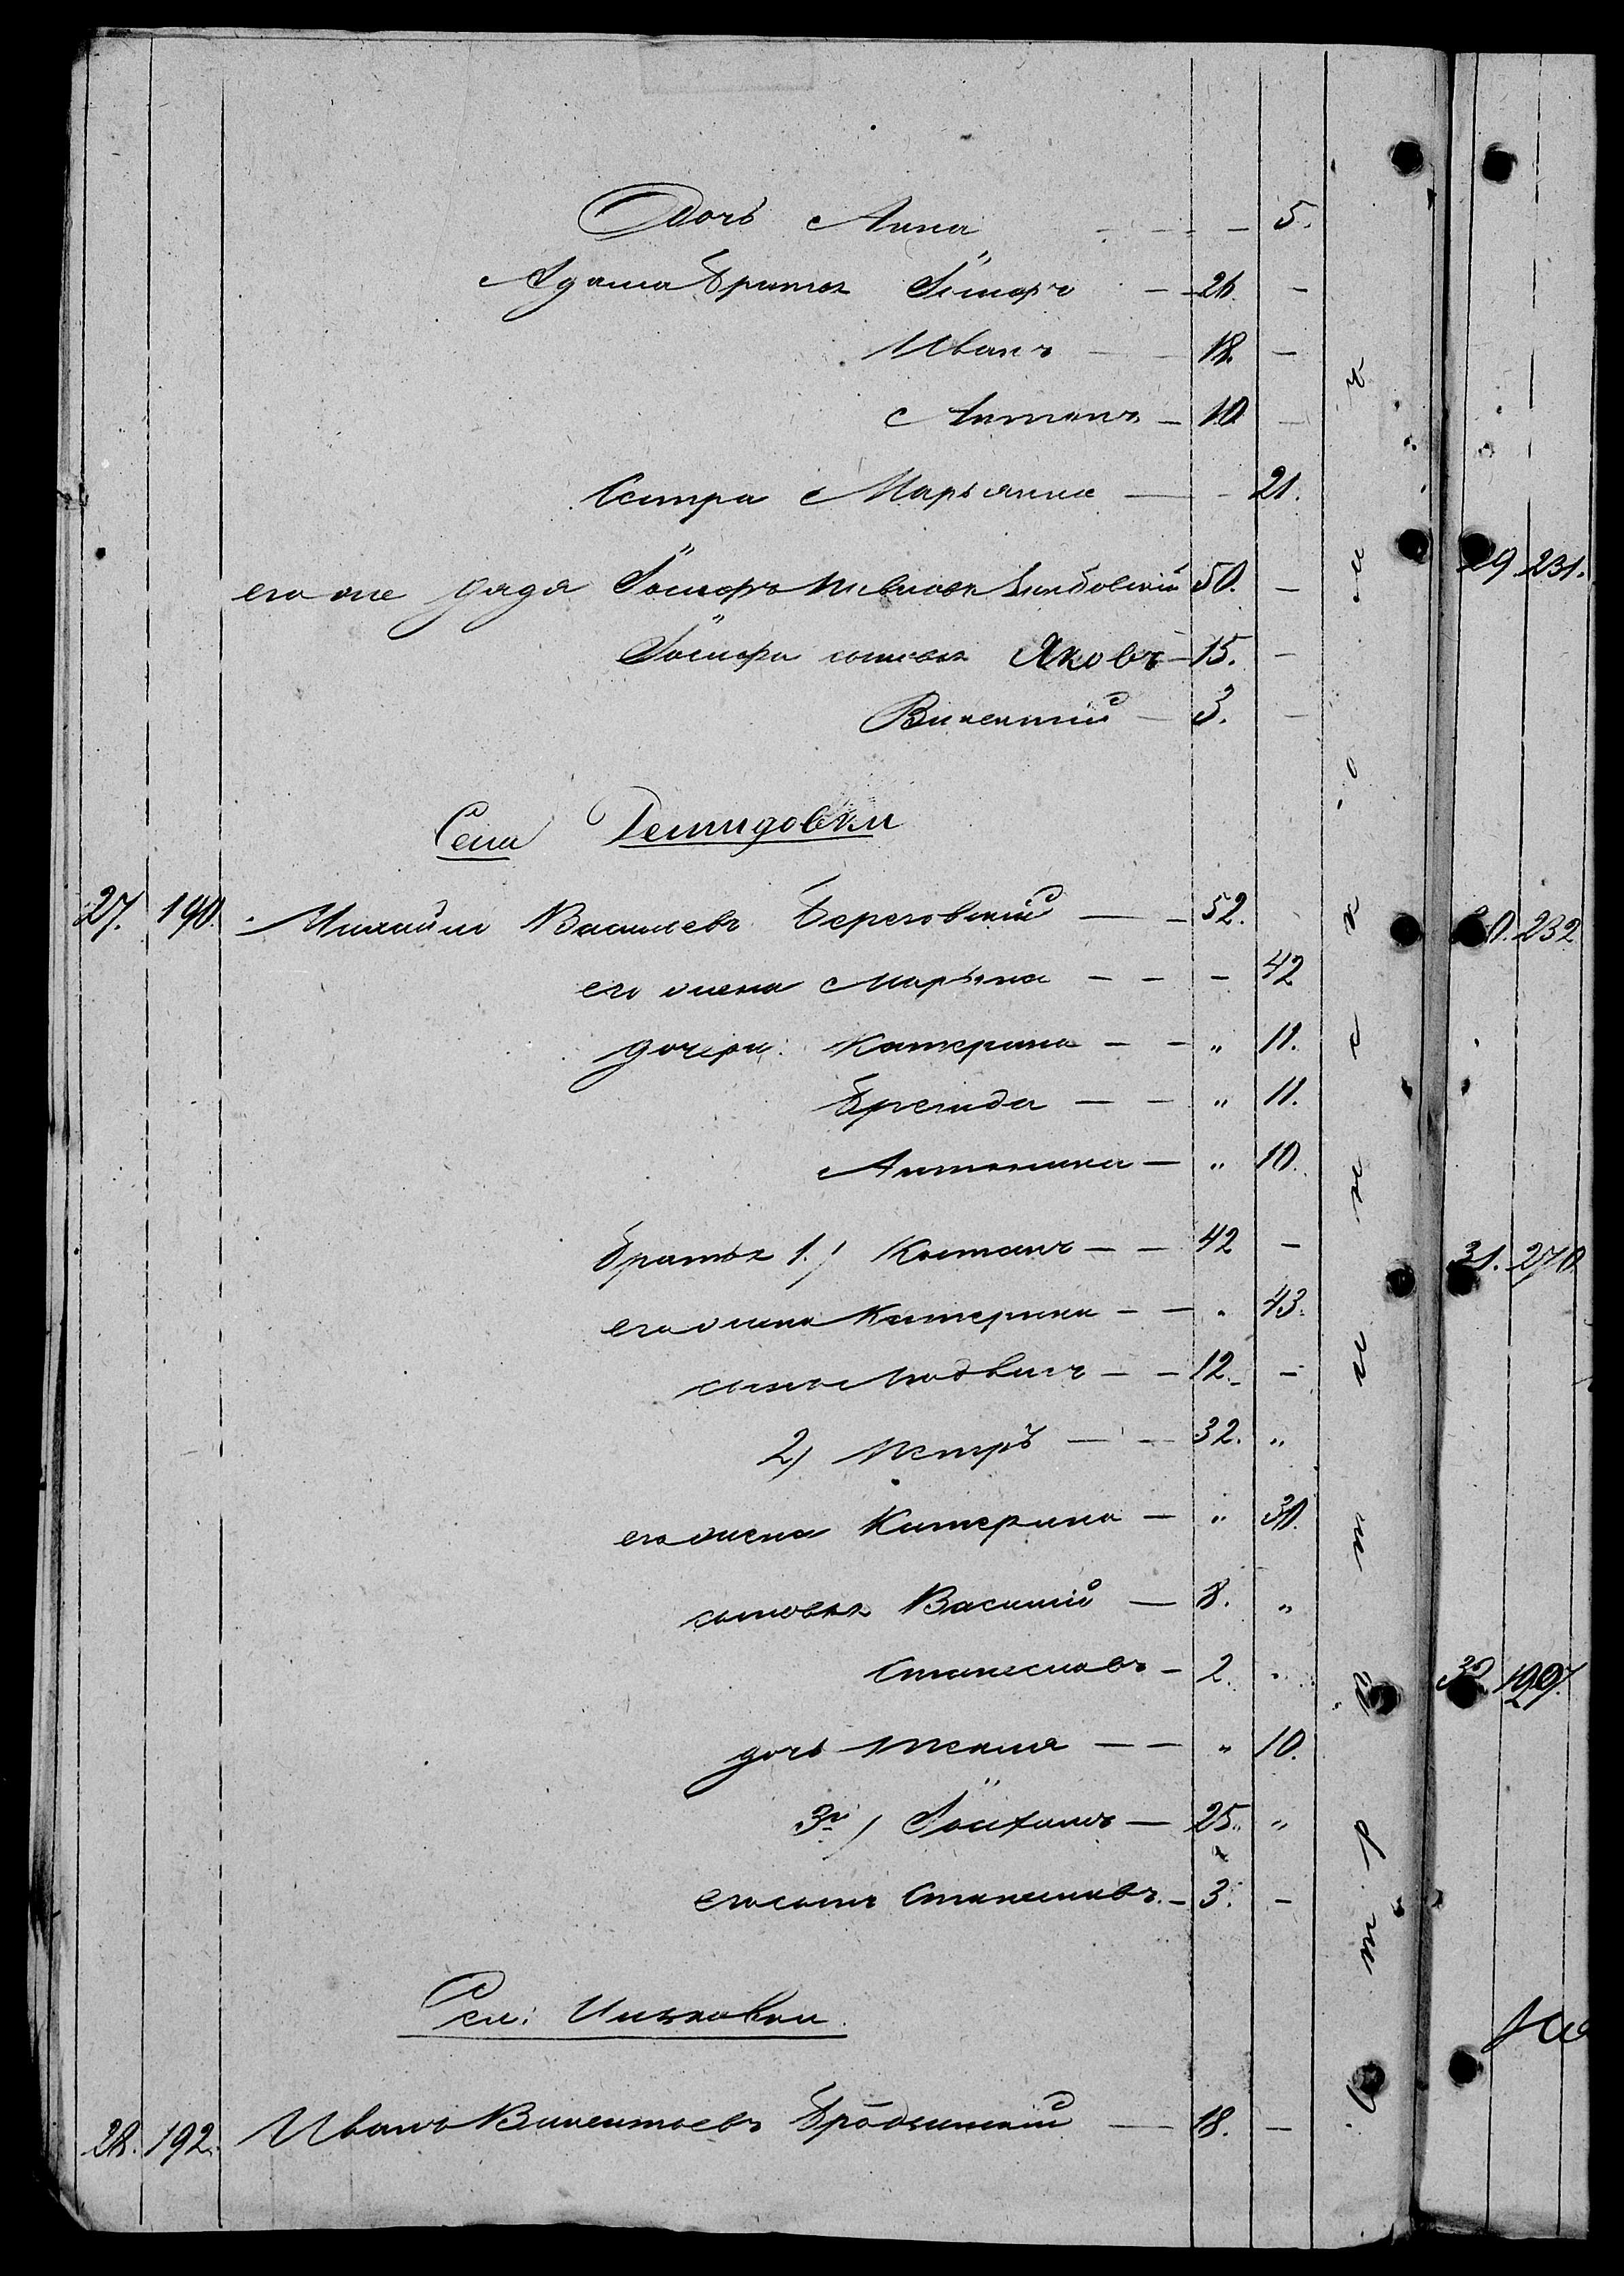 Дочь Анна - - - - 5.
Адама братья Іосифъ - - 26. -
Иванъ - - 18. -
Антонъ - 10 -
Сестра Марьянна - - 21.
его же дядя Іосифъ 50. -
Іосифа сыновья Яковъ - 15. -
Викентий - 3. -
Села Демидовки
27. 190. Михайло Васильевъ Береговский - - 52.
его жена Марьяна - - - 42
дочери: Катерина - - " 11.
Бригида - - " 11.
Антонина - " 10.
братья 1.) Костанъ - - 42 -
его жена Катерина - - " 43.
сынъ Людвигъ - - 12. -
2) Петръ - - 32. "
его жена Катерина - " 30.
сыновья Василий - 8. "
Станиславъ - 2. "
дочь Текля - - " 10.
3й) Іоахимъ - 25. "
его сынъ Станиславъ. - 3. -
Сел:
28. 192. Иванъ Викентьевъ - 18. -
29 231.
30. 232
31. 270.
32 197.